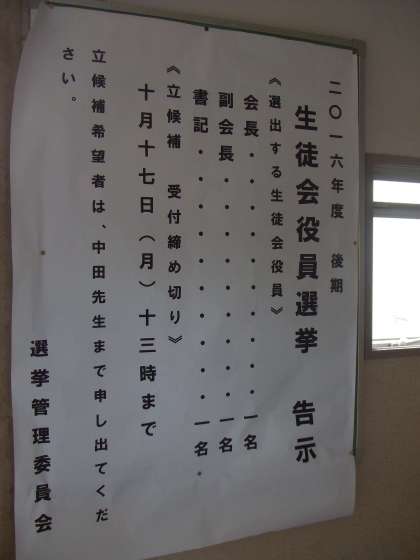 二〇一六年度 後期
生徒会役員選挙 告示
《選出する生徒会役員》
会長・・・・・・・・・・・一名
副会長・・・・・・・・・・一名
書記・・・・・・・・・・・一名
《立候補 受付締め切り》
十月十七日（月）十三時まで
立候補希望者は、中田先生まで申し出てくだ
さい。
選挙管理委員会